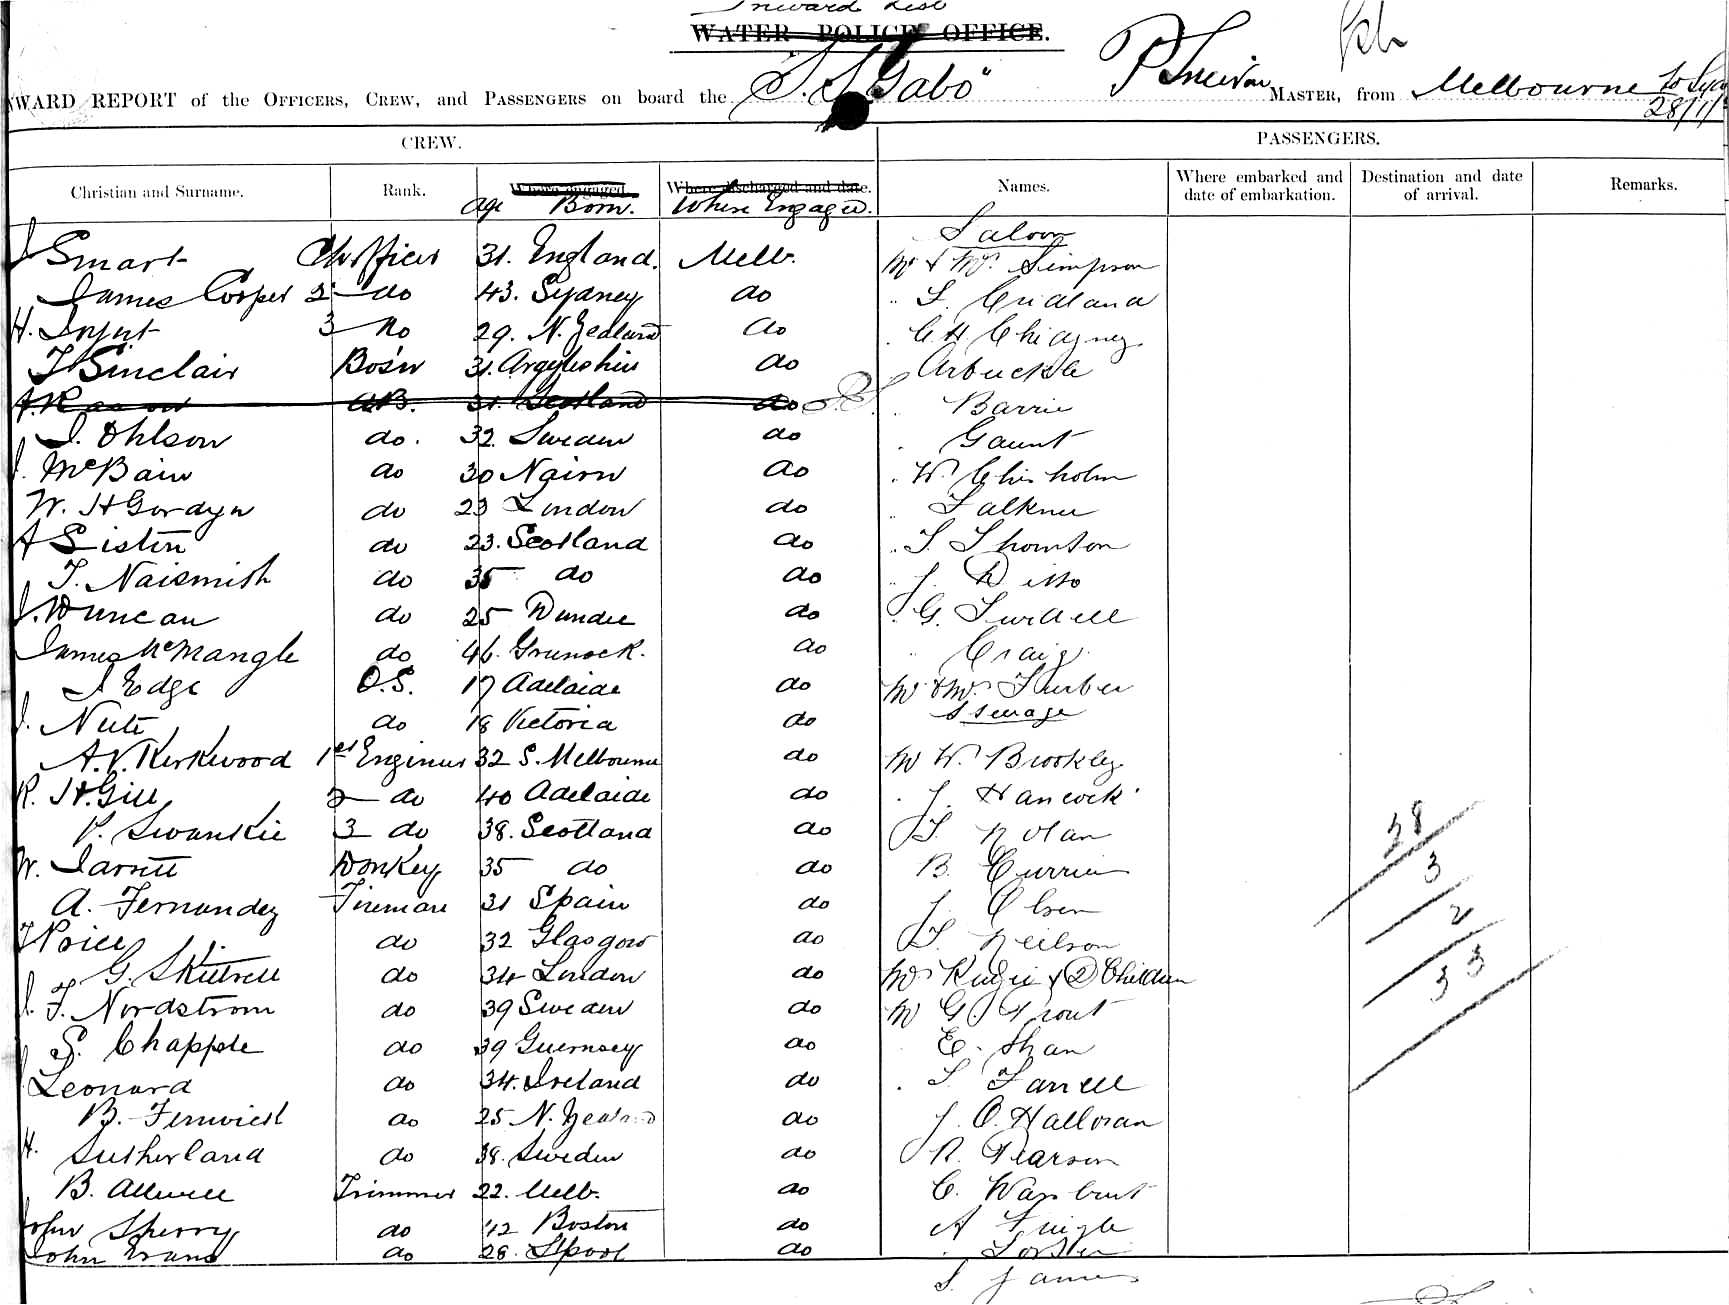 Inward List
WATER POLICE OFFICE.
INWARD REPORT of the OFFICERS, CREW, and PASSENGERS on board the "S.S. Gabo" MASTER, from Melbourne to
28/1/
CREW. PASSENGERS.
Christian and Surname. Rank. Where engaged. Where discharged and date. Names. Where embarked and date of embarkation. Destination and date of arrival. Remarks.
Age Born. Where Engaged.
Saloon
J Smart Ch Officer 31. England. Melb. Mr & Mrs Simpson
James Cooper 2 do 43. Sydney do
H. 3 do 29. N. Zealand do C. H.
Sinclair Bos'n 31. Argyleshire do Arbuckle
A.B. 31. Scotland do Barrie
J. Ohlson do. 32. Sweden do Gaunt
J. McBain do 30 Nairn do W. Chisholm
W. H do 23 London do Falkner
A do 23. Scotland do T. Thomson
T. Naismith do 35 do do J. Ditto
J. Duncan do 25 Dundee do G.
James McMangle do 46. Greenock. do Craig
J Edge O.S. 17 Adelaide do Mr & Mrs
Steerage
J. Nute do 18 Victoria do
A. V. Kirkwood 1st Engineer 32 S. Melbourne do Mr W. Brookley
R. H. Gill 2 do 40 Adelaide do J. Hancock
P. Swankie 3 do 38. Scotland do T. Nolan
28
W. Donkey 35 do do B. Currie
3
A. Fernandez Fireman 31 Spain do J. Olsen
2
Price do 32 Glasgow do T. Neilson
G. do 34 London do Mr & 2 Children
33
J. F. Nordstrom do 39 Sweden do Mr G. Trout
S. Chapple do 39 Guernsey do E. Shan
J Leonard do 34. Ireland do T Farrell
B. Fenwick do 25 N. Zealand do J. O'Halloran
H. Sutherland do 38. Sweden do R. Pearson
B. Trimmer 22. Melb. do C.
John Sherry do 42 Boston do A
John Evans do 28. L'pool do
S. James